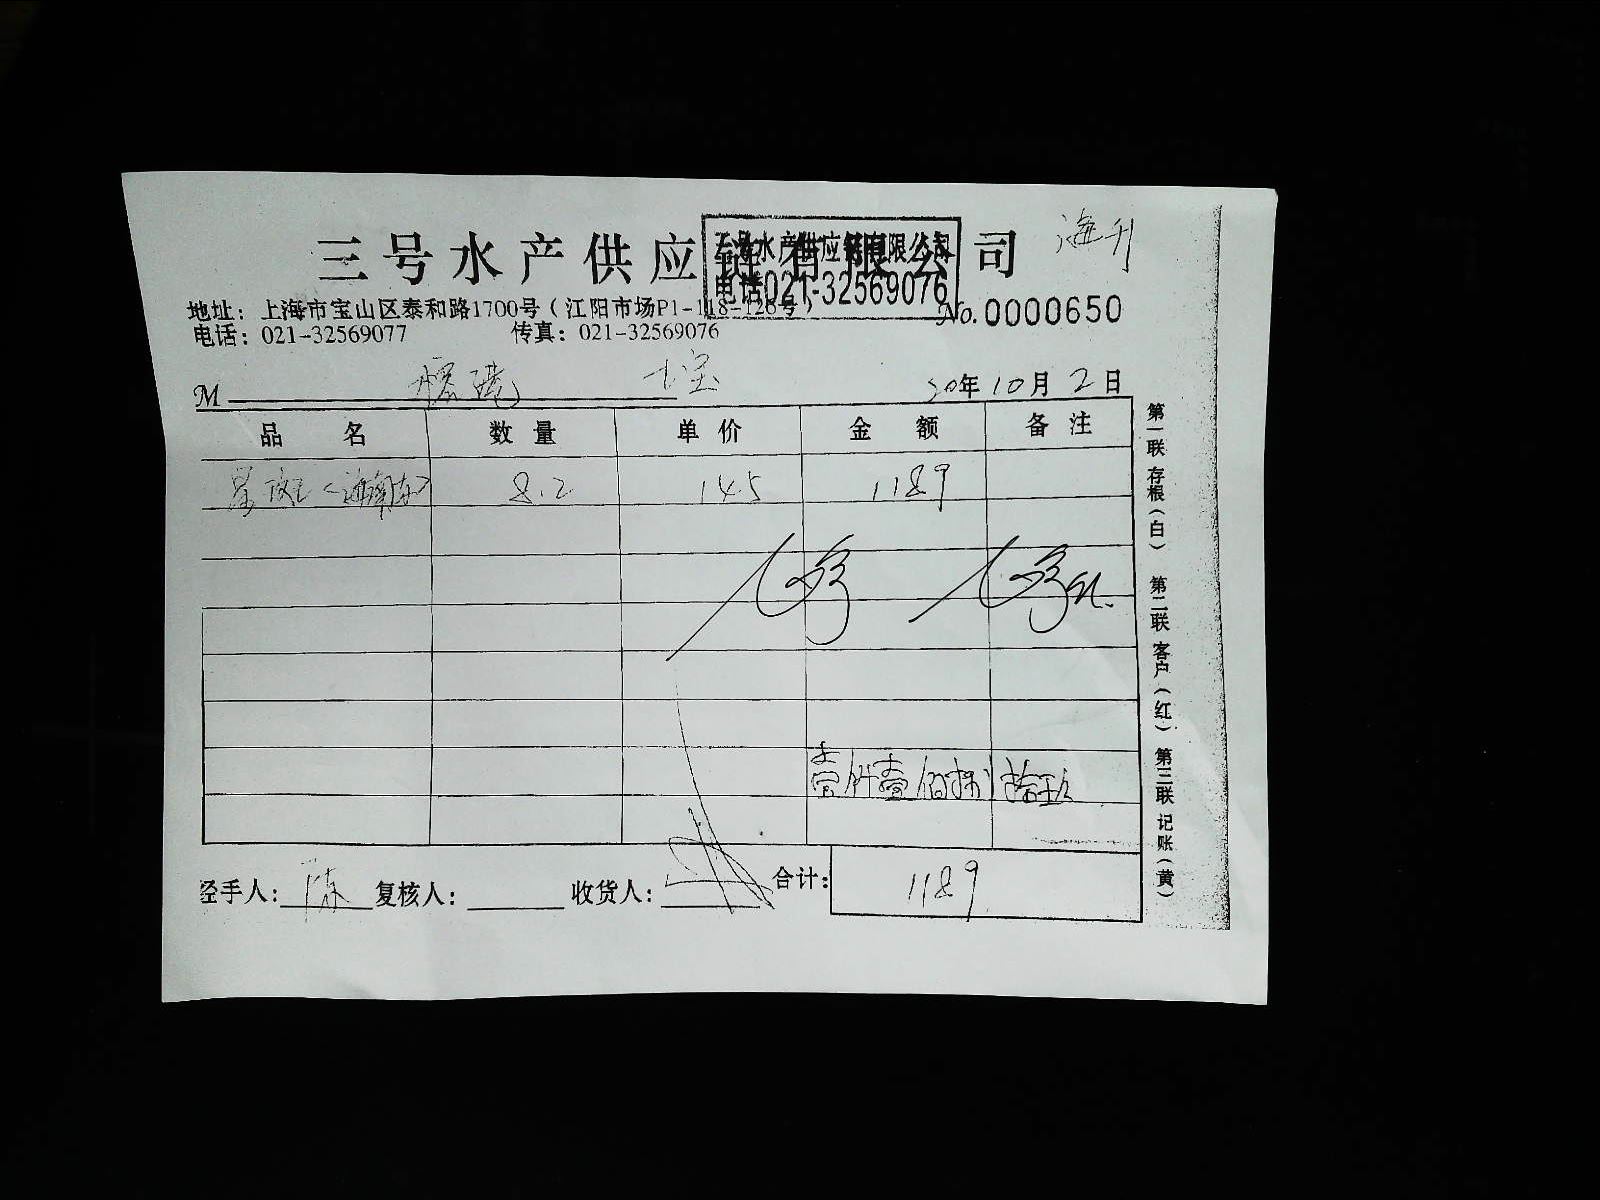 三号水产供应链有限公司
三号水产供应链有限公司
电话021-32569076
地址：上海市宝山区泰和路1700号（江阳市场P1-118-126号）
No.0000650
电话：021-32569077 传真：021-32569076
M
20年10月2日
品名 数量 单价 金额 备注
8.2 145 1189
壹仟壹佰捌拾玖
经手人：陈 复核人： 收货人： 合计：1189
第一联 存根（白） 第二联 客户（红） 第三联 记账（黄）